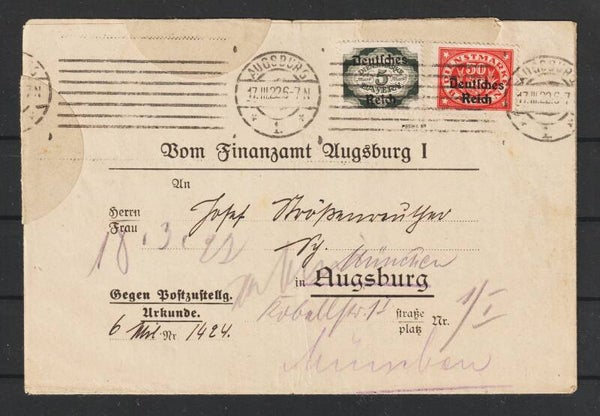 AUGSBURG
17.III.22.6-7N
1.
Deutsches
5
BAYERN
Reich
DIENSTMARKE
50
Deutsches
Reich
AUGSBURG
17.III.22.6-7
1.
Vom Finanzamt Augsburg I
An
Herrn
Frau
Josef Strößenreuther
18.3.22
München
in Augsburg
Gegen Postzustellg.
Urkunde.
Kobellstr. 13
straße
platz
Nr. 1/I
6 Nr. 1424.
München